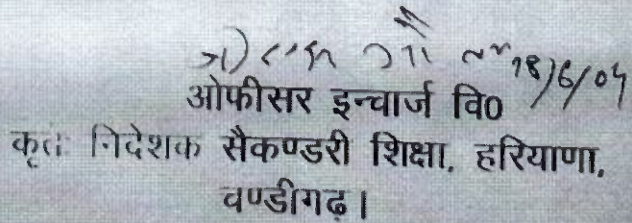 18/6/04
ओफीसर इन्चार्ज वि0
कृतः निदेशक सैकण्डरी शिक्षा, हरियाणा,
चण्डीगढ़।